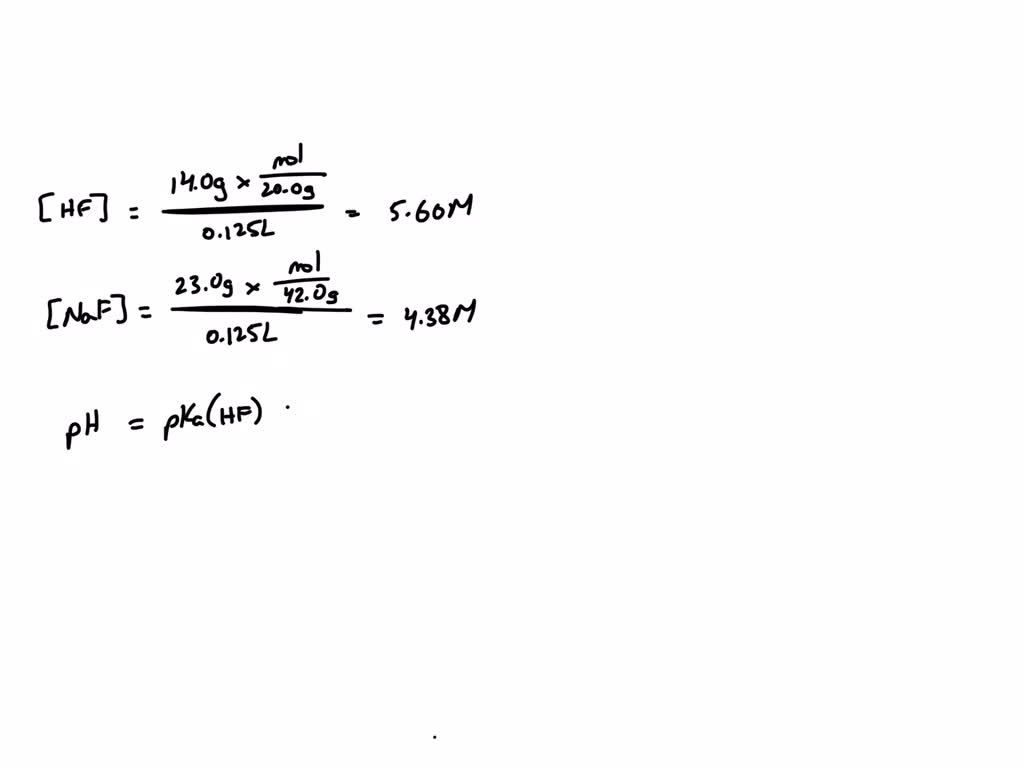 [HF] = 14.0g × mol/20.0g / 0.125L = 5.60M
[NaF] = 23.0g × mol/42.0g / 0.125L = 4.38M
pH = pKa(HF)